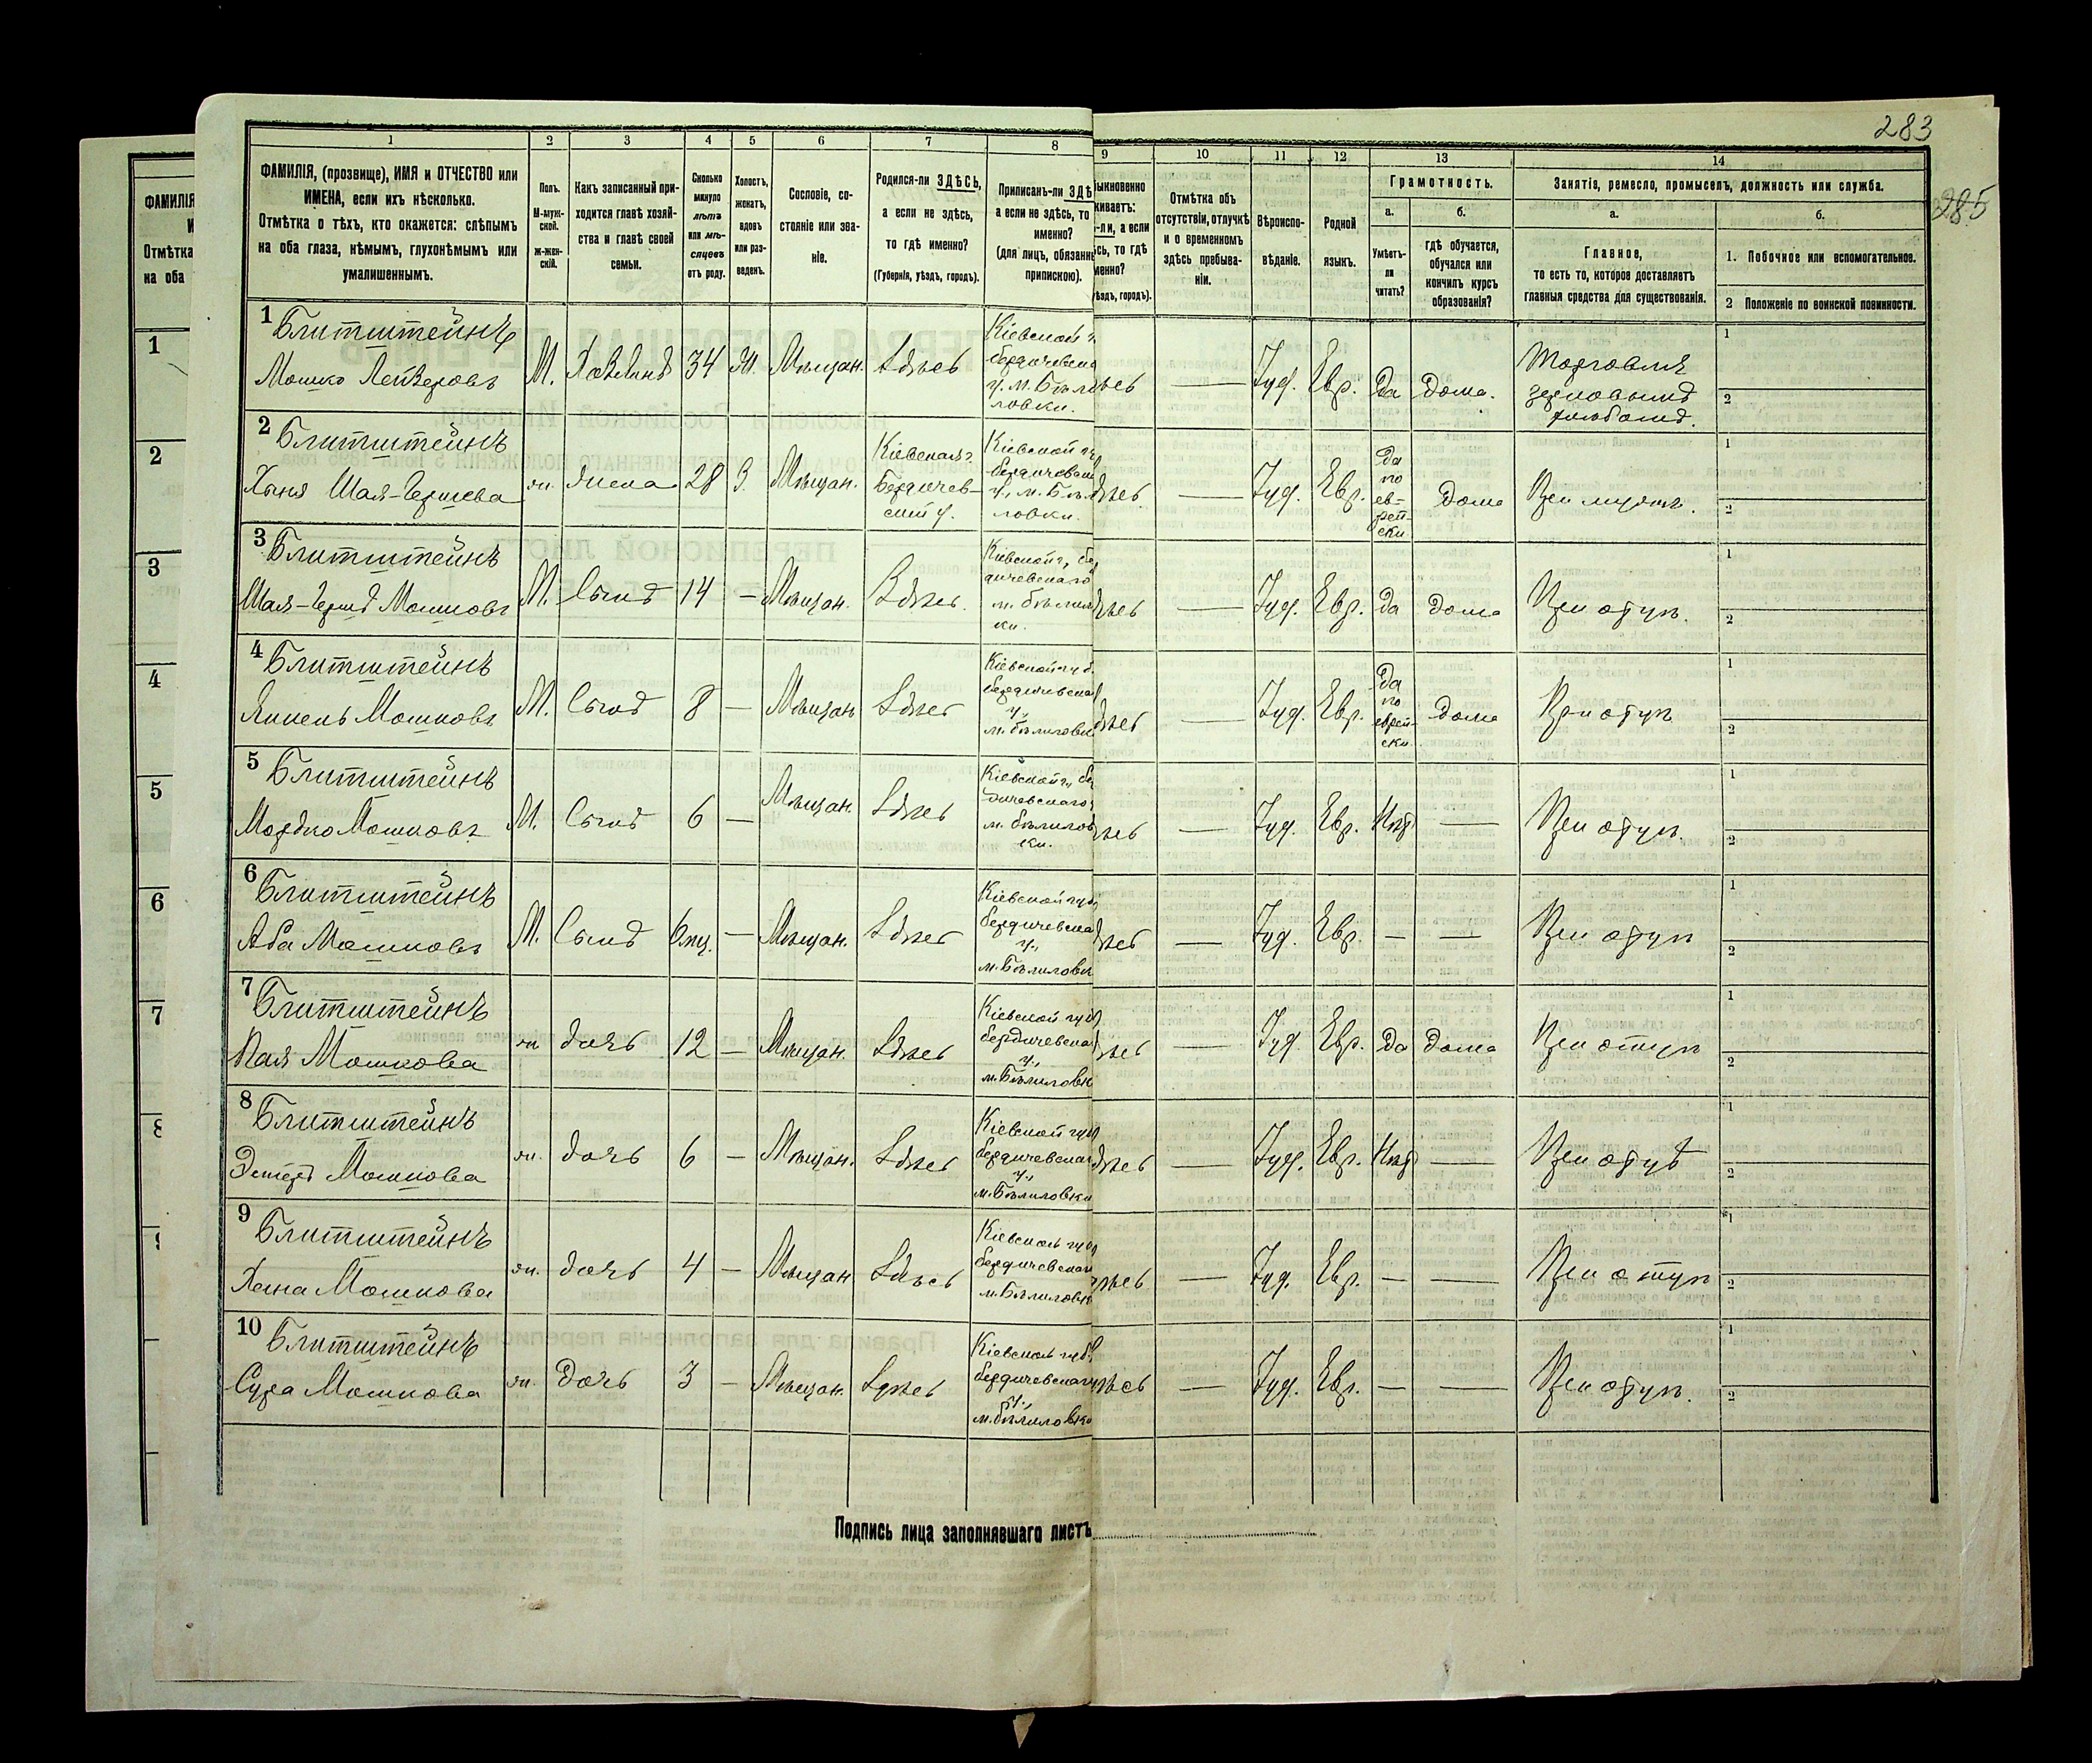 283
285
1
2
3
4
5
6
7
8
9
10
11
12
13
14
ФАМИЛІЯ, (прозвище), ИМЯ и ОТЧЕСТВО или
ИМЕНА, если ихъ нѣсколько.
Отмѣтка о тѣхъ, кто окажется: слѣпымъ
на оба глаза, нѣмымъ, глухонѣмымъ или
умалишеннымъ.
Полъ.
М-муж-
ской.
Ж-жен-
скій.
Какъ записанный при-
ходится главѣ хозяй-
ства и главѣ своей
семьи.
Сколько
минуло
лѣтъ
или мѣ-
сяцевъ
отъ роду.
Холостъ,
женатъ,
вдовъ
или раз-
веденъ.
Сословіе, со-
стояніе или зва-
ніе.
Родился-ли ЗДѢСЬ,
а если не здѣсь,
то гдѣ именно?
(Губернія, уѣздъ, городъ).
Приписанъ-ли ЗДѢ
а если не здѣсь, то
именно?
(для лицъ, обязанн
припискою).
ыкновенно
живаетъ:
-ли, а если
сь, то гдѣ
менно?
ѣздъ, городъ).
Отмѣтка объ
отсутствіи, отлучкѣ
и о временномъ
здѣсь пребыва-
ніи.
Вѣроиспо-
вѣданіе.
Родной
языкъ.
Грамотность.
а.
б.
Умѣетъ-
ли
читать?
гдѣ обучается,
обучался или
кончилъ курсъ
образованія?
Занятія, ремесло, промыселъ, должность или служба.
а.
б.
Главное,
то есть то, которое доставляетъ
главныя средства для существованія.
1. Побочное или вспомогательное.
2 Положеніе по воинской повинности.
ФАМИЛІЯ
И
Отмѣтка
на оба
1
2
3
4
5
6
7
8
1 Блитштейнъ
Мошко Лейзеровъ
М. Хозяинъ 34 Ж. Мѣщан. Здѣсь
Кіевской г
бердичевска
у. м. Бѣли
ловки.
ѣсь — Іуд. Евр. Да Дома.
Торговля
зерновымъ
хлѣбомъ.
1
2
2 Блитштейнъ
Хыня Шая-Гершева
жн. жена 28 З. Мѣщан.
Кіевская г.
Бердичев-
скій у.
Кіевской гу
бердичевск
у., м. Бѣли
ловки.
дѣсь — Іуд. Евр.
Да
по
ев-
рей-
ски
Дома
При мужѣ.
1
2
3 Блитштейнъ
Шая-Гершъ Мошковъ
М. Сынъ 14 — Мѣщан. Здѣсь.
Кіевской г., бер
дичевскаго
м. бѣлилов
ки.
дѣсь — Іуд. Евр. Да Дома При отцѣ.
1
2
4 Блитштейнъ
Янкель Мошковъ
М. Сынъ 8 — Мѣщан Здѣсь
Кіевской губ
бердичевска
у.,
м. бѣлиловк
дѣсь — Іуд. Евр.
Да
по
еврей-
ски
Дома
При отцѣ
1
2
5 Блитштейнъ
Мордко Мошковъ
М. Сынъ 6 — Мѣщан. Здѣсь
Кіевской г., бер
дичевскаго
м. бѣлилов
ки.
ѣсь — Іуд. Евр. Нѣтъ — При отцѣ.
1
2
6 Блитштейнъ
Аба Мошковъ
М. Сынъ 6мц. — Мѣщан. Здѣсь
Кіевской губ
бердичевска
у.,
м. Бѣлиловк
дѣсь — Іуд. Евр. — — При отцѣ
1
2
7 Блитштейнъ
Мошкова
жн дочь 12 — Мѣщан. Здѣсь
Кіевской губ
бердичевска
у.,
м. Бѣлиловк
ѣсь — Іуд Евр. Да дома При отцѣ
1
2
8 Блитштейнъ
Эстеръ Мошкова
жн. дочь 6 — Мѣщан. Здѣсь
Кіевской губ
бердичевска
у.,
м. Бѣлиловки
дѣсь — Іуд. Евр. Нѣтъ — При отцѣ
1
2
9 Блитштейнъ
Хана Мошкова
жн. дочь 4 — Мѣщан Здѣсь
Кіевской губ
бердичевска
м. Бѣлиловк
дѣсь — Іуд. Евр. — — При отцѣ
1
2
10 Блитштейнъ
Сура Мошкова
жн. дочь 3 — Мѣщан. Здѣсь
Кіевской губ
бердичевскаго
у.,
м. бѣлиловки
дѣсь — Іуд. Евр. — — При отцѣ.
1
2
Подпись лица заполнявшаго листъ